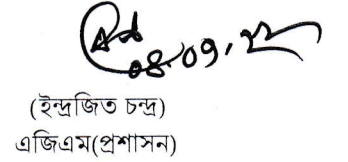 ০৪.০9.২২
(ইন্দ্রজিত চন্দ্র)
এজিএম(প্রশাসন)